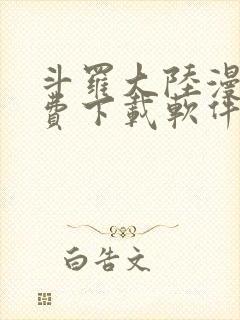 斗羅大陸漫
費下載軟件
白告文